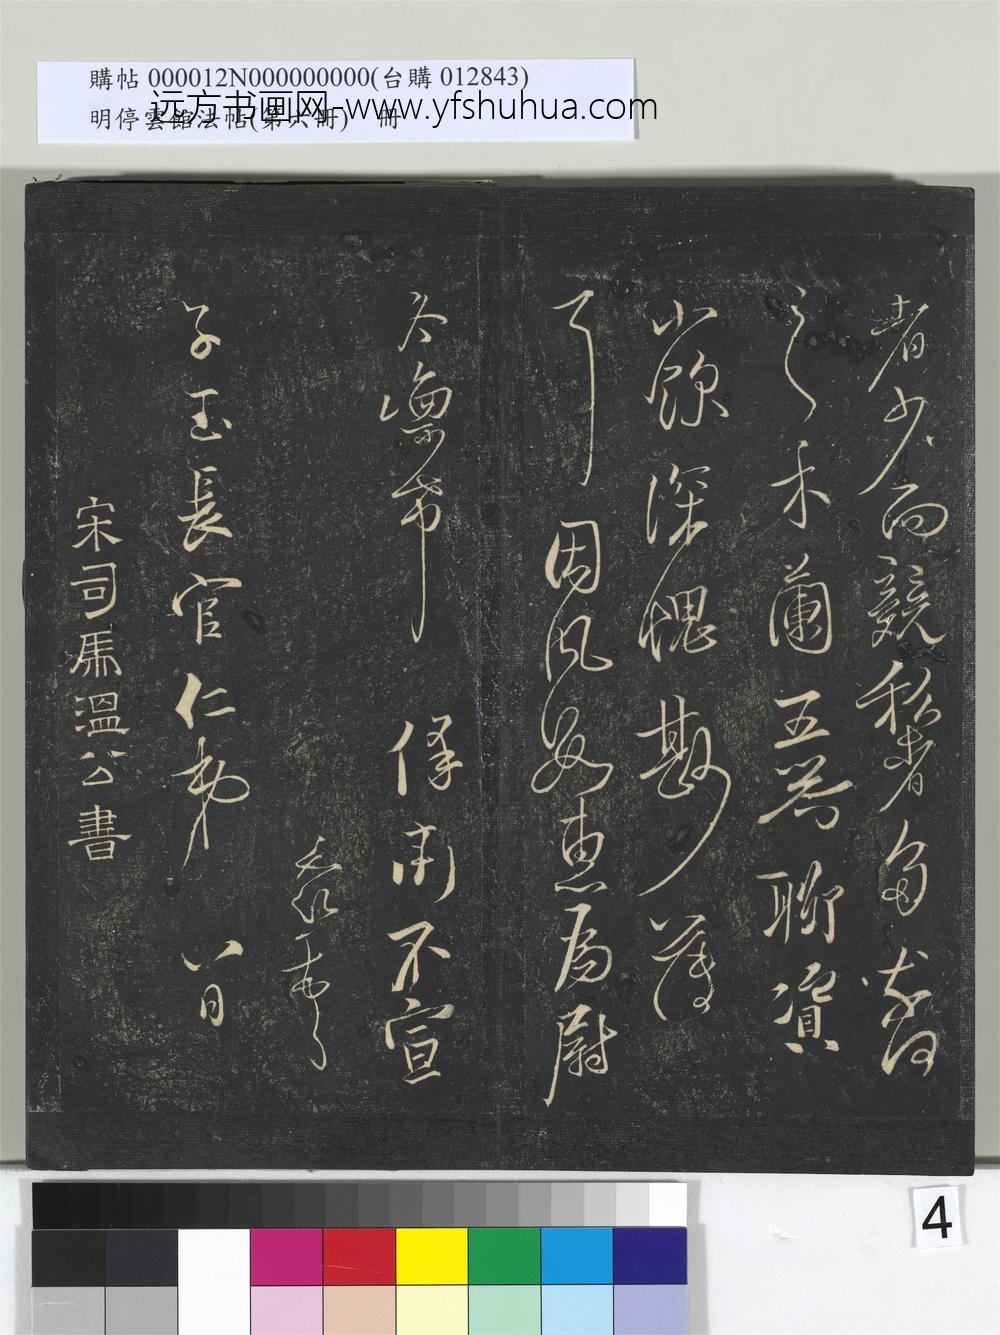 購帖 000012N000000000(台購 012843)
明停雲館法帖(第六冊) 冊
远方书画网-www.yfshuhua.com
者少而競私者多
之木蘭五器聊資
深愧薄
耳 因風為尉
冬凜希 保不宣
子玉長官仁弟 八日
宋司馬溫公書
4